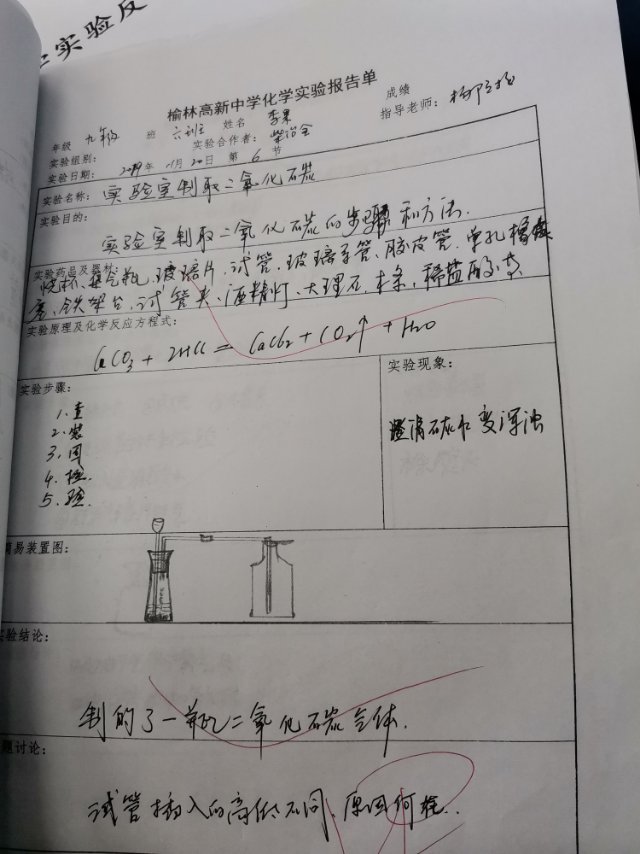 实验反
榆林高新中学化学实验报告单
成绩
年级 九年级 班 六班 姓名 李果
指导老师：
实验组别： 实验合作者：
实验日期： 2019年 11月 20日 第 6 节
实验名称：实验室制取二氧化碳
实验目的：
实验室制取二氧化碳的步骤和方法.
实验药品及器材：
烧杯、集气瓶、玻璃片、试管、玻璃导管、胶皮管、单孔橡胶
塞、铁架台、试管夹、酒精灯、大理石、木条、稀盐酸、
实验原理及化学反应方程式：
CaCO3 + 2HCl = CaCl2 + CO2↑ + H2O
实验步骤：
1. 查
2. 装
3. 固
4. 检.
5. 验.
实验现象：
澄清石灰水变浑浊
简易装置图：
实验结论：
制的了一瓶二氧化碳气体.
问题讨论：
试管插入的高低不同，原因何在..